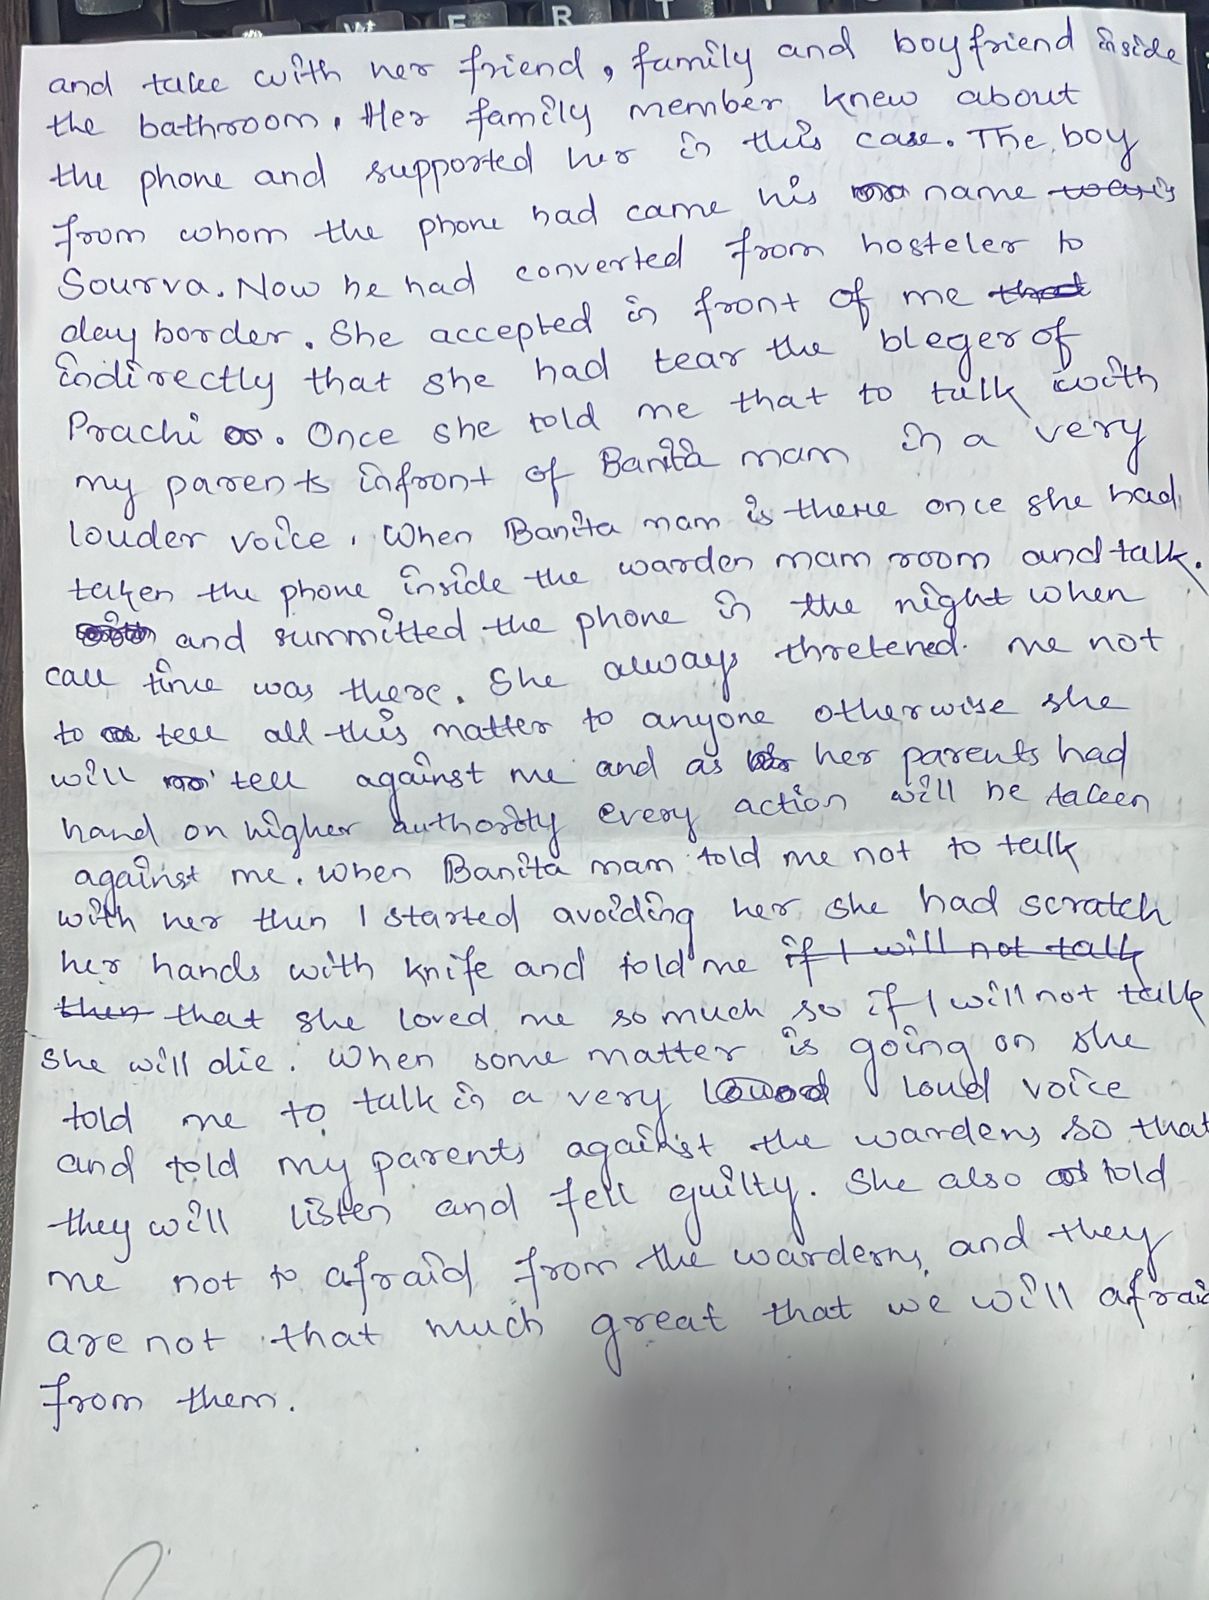 and take with her friend, family and boyfriend inside
the bathroom. Her family member knew about
the phone and supported her in this case. The boy
from whom the phone had came his name
Sourva. Now he had converted from hosteler to
day border. She accepted in front of me that
indirectly that she had tear the bleger of
Prachi. Once she told me that to talk with
my parents infront of Banita mam in a very
louder voice. When Banita mam is there once she had
taken the phone inside the warden mam room and talk.
and summitted the phone in the night when
call time was there. She always thretened me not
to tell all this matter to anyone otherwise she
will tell against me and as her parents had
hand on higher authority every action will be taken
against me. When Banita mam told me not to talk
with her thin I started avoiding her she had scratch
her hands with knife and told me if I will not talk
then that she loved me so much so if I will not talk
she will die. When some matter is going on she
told me to talk in a very loud voice
and told my parents against the wardens so that
they will listen and fell guilty. She also told
me not to afraid from the warderns, and they
are not that much great that we will afraid
from them.
E R T